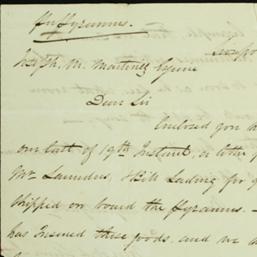 per Tyrannus.
Joseph. M. Martinez Esquire
Dear Sir
Enclosed you h
our last of 19th Instant, or to the p
Mr Saunders, Bill Loading for g
shipped on board the Tyrannus. -
has Insured these goods, and we a